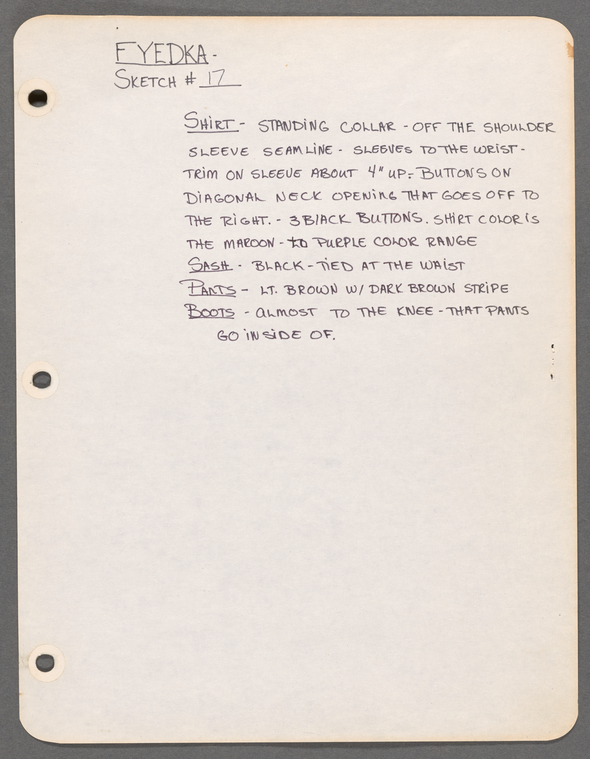 FYEDKA-
SKETCH # 17
SHIRT - STANDING COLLAR - OFF THE SHOULDER
SLEEVE SEAMLINE - SLEEVES TO THE WRIST -
TRIM ON SLEEVE ABOUT 4" UP - BUTTONS ON
DIAGONAL NECK OPENING THAT GOES OFF TO
THE RIGHT. - 3 BLACK BUTTONS. SHIRT COLOR IS
THE MAROON - TO PURPLE COLOR RANGE
SASH - BLACK - TIED AT THE WAIST
PANTS - LT. BROWN W/ DARK BROWN STRIPE
BOOTS - ALMOST TO THE KNEE - THAT PANTS
GO INSIDE OF.